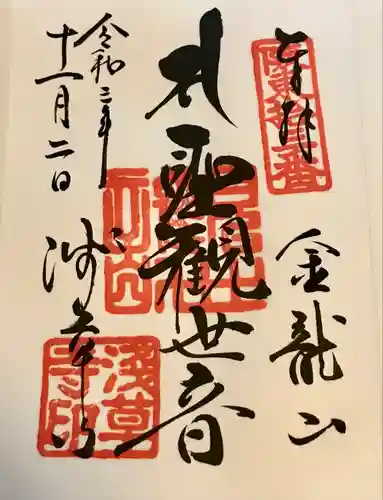 奉拝
坂東拾三番
金龍山
聖観世音
浅草寺
令和二年
十一月二日
浅草寺印